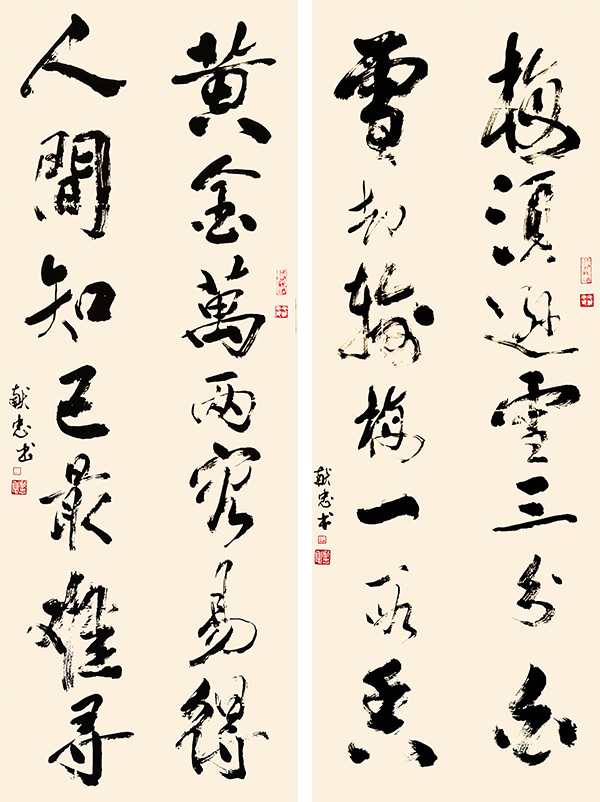 梅須遜雪三分白
雪却輸梅一段香
献忠书
黄金萬两容易得
人間知己最難尋
献忠书